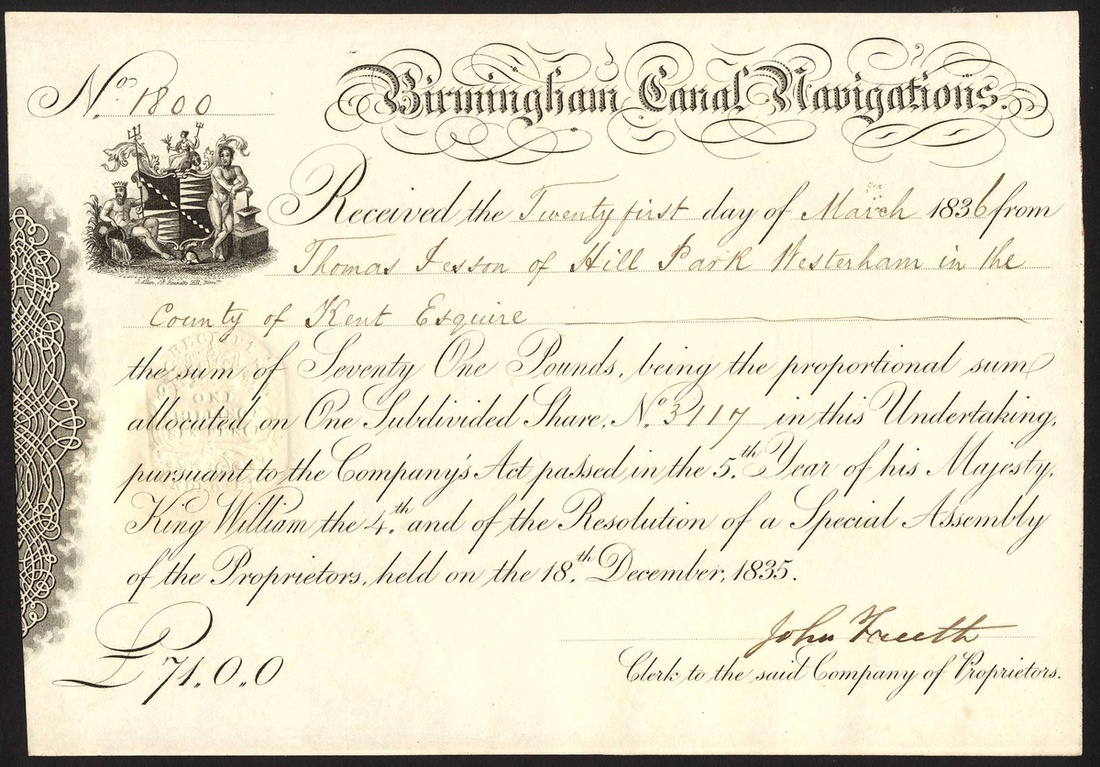 No. 1800
Birmingham Canal Navigations.
Received the Twenty first day of March 1836 from
Thomas Jesson of Hill Park Westerham in the
County of Kent Esquire
the sum of Seventy One Pounds, being the proportional sum
allocated on One Subdivided Share, No. 3117 in this Undertaking,
pursuant to the Company's Act passed in the 5.th Year of his Majesty,
King William the 4.th and of the Resolution of a Special Assembly
of the Proprietors, held on the 18.th December, 1835.
John Freeth
£71.0.0
Clerk to the said Company of Proprietors.